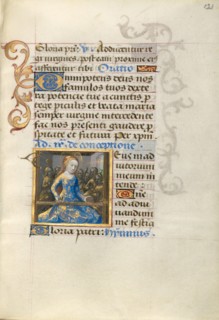 Gloria pr̄i. V. Adducentur re
gi virgines post eam proxime ei⁹
afferentur tibi Oratio
Omnipotens deus nos
famulos tuos dexte
ra potentie tue a cunctis p̲
rege periculis et beata maria
semper virgine intercedente
fac nos presenti gaudere p̲ros
peritate et futura per xp̄m
Ad. de conceptione.
Deus in ad
iutorium
meum in
tende
Dn̄e
ad adiu
uandum
me festina
Gloria patri: hymnus.